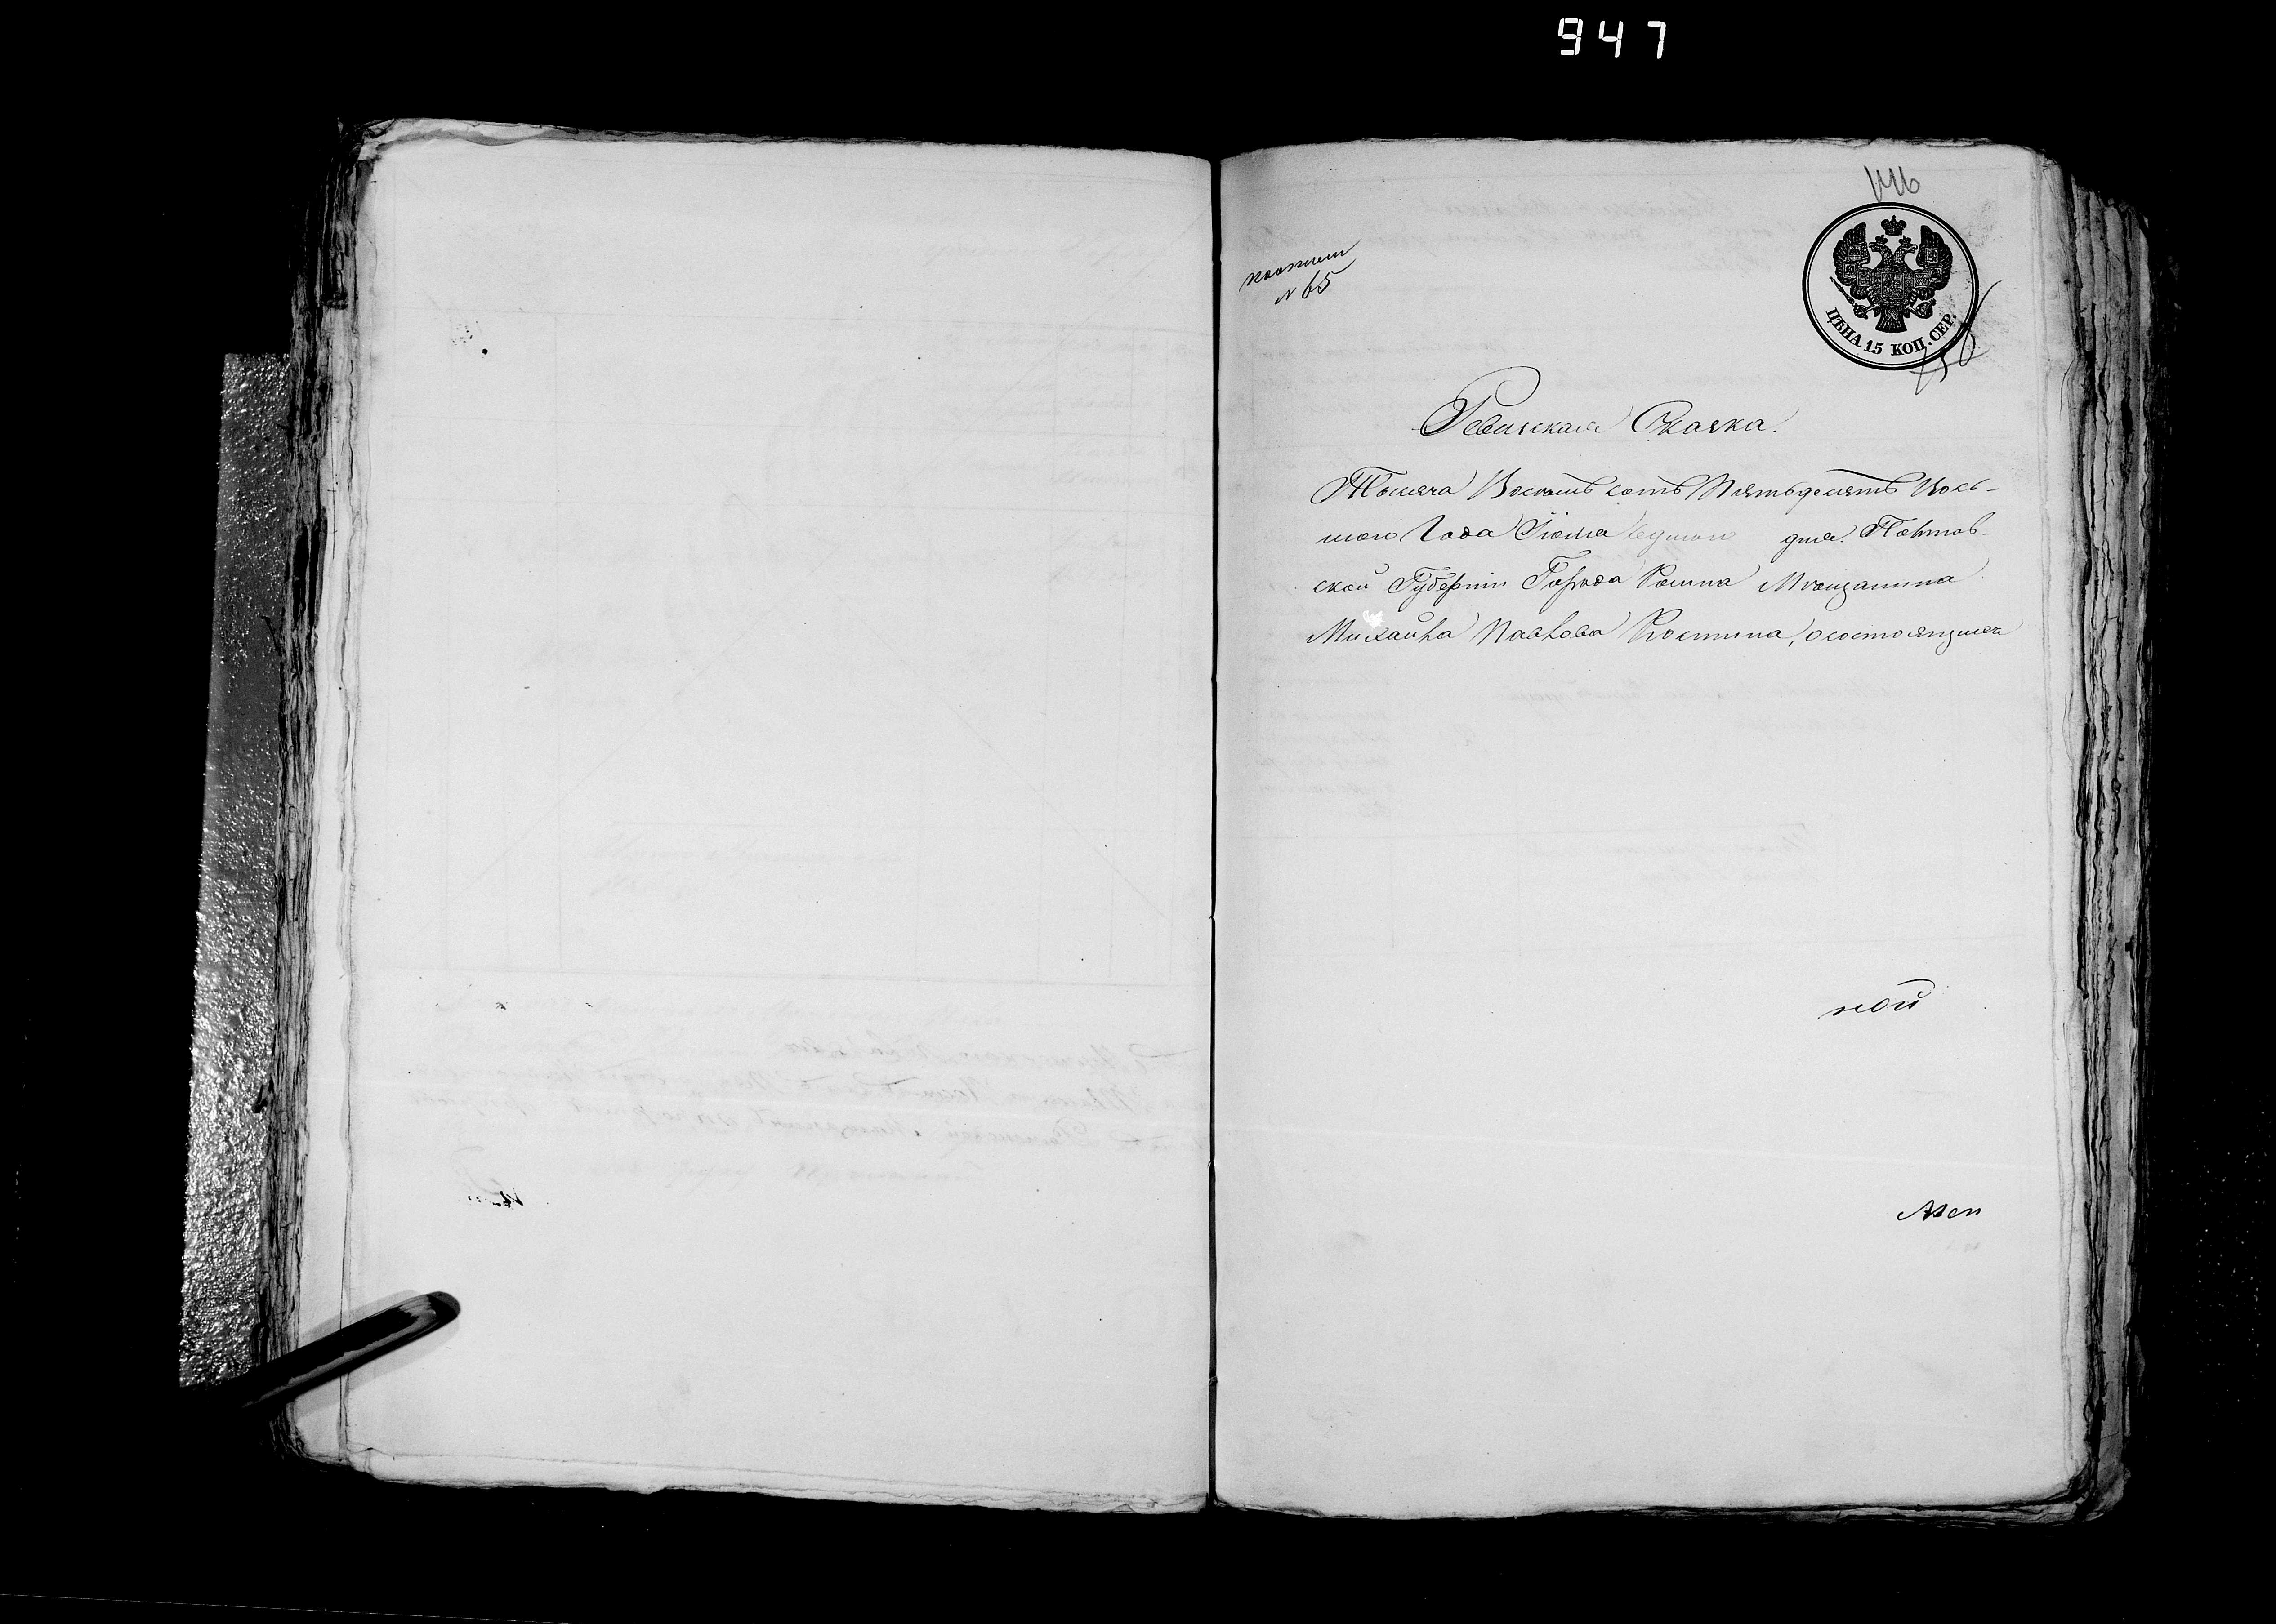 947
146
№ 65
ЦѢНА 15 КОП. СЕР.
Ревизская Сказка.
Тысяча Восемь сотъ Пятьдесятъ Вось-
маго Года Іюня седмаго дня. Полтав-
ской Губерніи Города Ромна Мѣщанина
Михайла Павлова Костина, о состоящихъ
ной